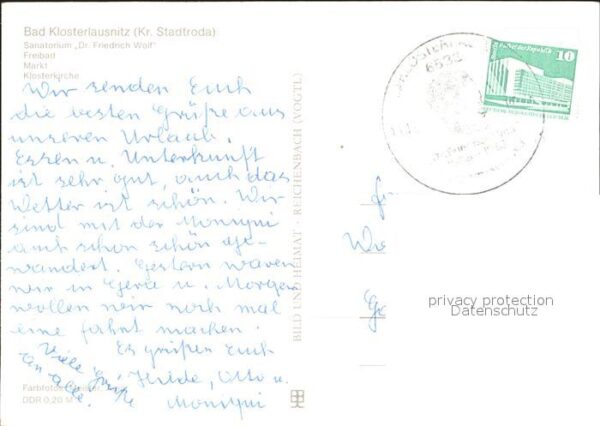 Bad Klosterlausnitz (Kr. Stadtroda)
Sanatorium „Dr. Friedrich Wolf"
Freibad
Markt
Klosterkirche
Wir senden Euch
die besten Grüße aus
unseren Urlaub.
Essen u. Unterkunft
ist sehr gut, auch das
Wetter ist schön. Wir
sind mit der Moniqui
auch schon schön ge-
wandert. Gestern waren
wir in Gera u. Morgen
wollen wir noch mal
eine fahrt machen.
Es grüßen Euch
Hilde, Otto u.
Moniqui
Viele Grüße
an alle.
Farbfotos
DDR 0,20 M
BILD UND HEIMAT · REICHENBACH (VOGTL)
6532
Palast der Republik
10
Wie
Ge
privacy protection
Datenschutz